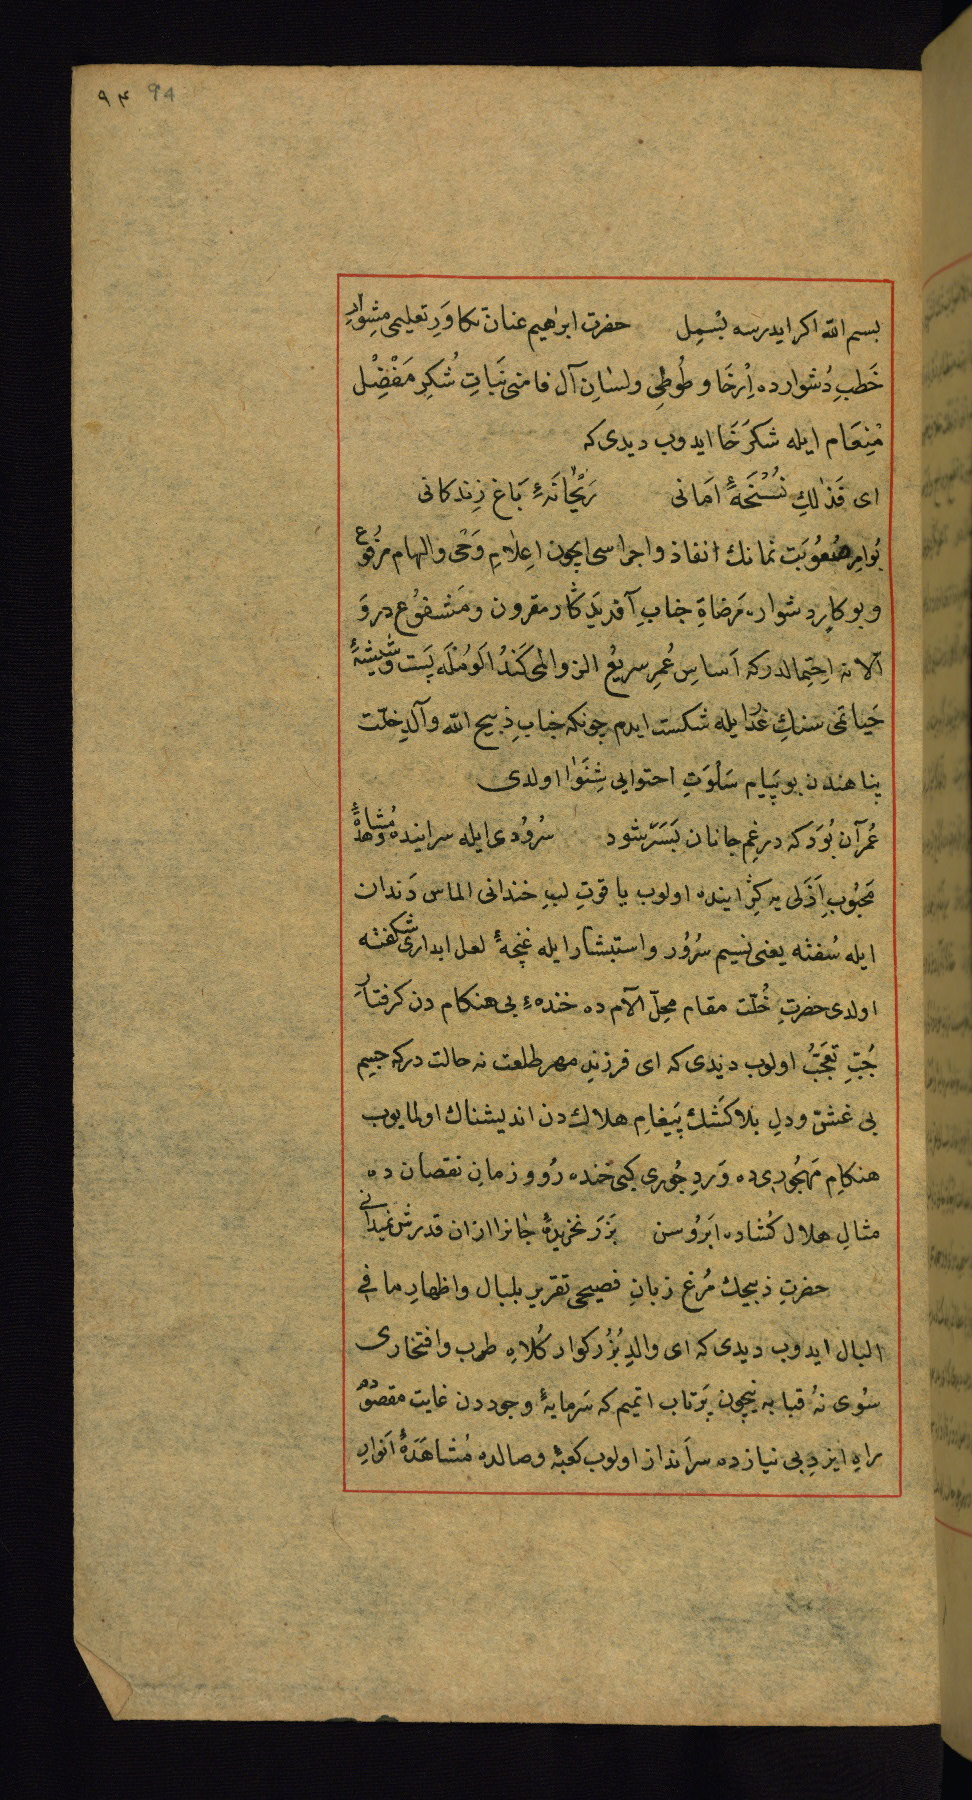 ۹۴ 94
بسم الله اكر ايدرسه بسْمِل حضرت ابراهيم عنان تكاوَرِ تعليمى مشِوارِ
خَطبِ دُشوارده اِرْخَا و طُوطِى ولسٰانِ آل فامنى نَباتِ شُكرِ مَفْضِْل
مْنِعَام ايله شكرَخَا ايدوب ديدى كه
اى فَذٰلكِ نُسْخَهٔ امَانى رَيْحَٰانَهٔ بَاغ زِندكانى
بُوامرِ صُعُوبَت نمانك انفاذ واجراسى ايچون اعِلٰامِ وَحْى والهام مرفوع
وبو كارِ دشوار، مَرضاةِ جنابِ آفريدكَار مقرون ومَشفوُع در وَ
آلانه احِتِمالدركه اَساسِ عُمرِ سريعُ الزوالمى كَندُ الَومُله پَست وشيشهٔ
حَياتمى سنكِ غدرايله شكست ايدم چونكه جنابِ ذبيح الله وآلدِ خلّت
پناهندن بوپَيام سَلْوَتِ احتوايى شِنَوٰا اولدى
عُمرآن بُوَدكه درغمِ جانان بَسَرشود سُرُودى ايله سراينده ومُشاهدهٔ
مَحبُوبِ اَذَلى يه كِرٰاينده اولوب ياقوتِ لبِ خندانى الماس دَندان
ايله سُفته يعنى نسيم سرُوُر واستبشار ايله غنچهٔ لعل ابدارى شكفته
اولدى حضرتِ خُلّت مقام محِلّ الآم ده خندهٔ بى هنكام دن كرفتارِ
جُبِّ تعَجّبُ اولوب ديدى كه اى فرزندِ مهر طلعت نه حالت دركه جيم
بى غشّ ودلِ بلاكَشك پَيغامِ هلاك دن انديشناك اولمايوب
هنكامِ مَهجُورى ده وَردِ جُورى كبى خنده رُو و زمانِ نقصان ده
مثالِ هلال كُشاده ابَروُسن بَزَر نخريدهٔ جٰانرا ازان قدرش نميدانى
حضرتِ ذبيحك مُرغ زبانِ فصيحى تقرير بلبال واظهارِ ما فى
البال ايدوب ديدى كه اى والدِ بُزُركوار كُلاهِ طرب وافتخارى
سُوى نهُ قبابه نيچون پَرتاب اتميم كه سَرمايهٔ وجوددن غايت مقصودم
راهِ ايزدِ بى نيازده سرانداز اولوب كعبهٔ وصالده مُشاهَدَهٔ اَنوارِ